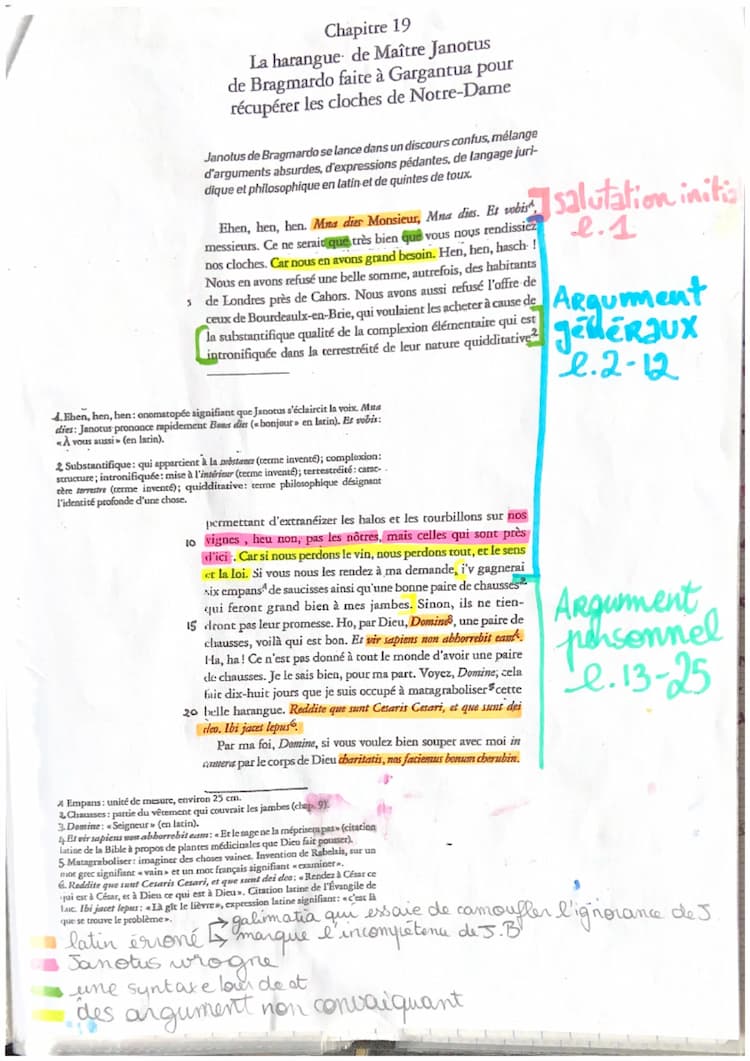 Chapitre 19
La harangue de Maître Janotus
de Bragmardo faite à Gargantua pour
récupérer les cloches de Notre-Dame
Janotus de Bragmardo se lance dans un discours confus, mélange
d'arguments absurdes, d'expressions pédantes, de langage juri-
dique et philosophique en latin et de quintes de toux.
Ehen, hen, hen. Mna dies Monsieur, Mna dies. Et vobis1,
messieurs. Ce ne serait que très bien que vous nous rendissiez
nos cloches. Car nous en avons grand besoin. Hen, hen, hasch !
Nous en avons refusé une belle somme, autrefois, des habitants
5 de Londres près de Cahors. Nous avons aussi refusé l'offre de
ceux de Bourdeaulx-en-Brie, qui voulaient les acheter à cause de
la substantifique qualité de la complexion élémentaire qui est
intronifiquée dans la terrestréité de leur nature quidditative2
salutation initia
l.1
ARgument
généRaux
l.2-12
1. Ehen, hen, hen : onomatopée signifiant que Janotus s'éclaircit la voix. Mna
dies : Janotus prononce rapidement Bona dies (« bonjour » en latin). Et vobis :
« À vous aussi » (en latin).
2. Substantifique : qui appartient à la substance (terme inventé) ; complexion :
structure ; intronifiquée : mise à l'intérieur (terme inventé) ; terrestréité : carac-
tère terrestre (terme inventé) ; quidditative : terme philosophique désignant
l'identité profonde d'une chose.
permettant d'extranéizer les halos et les tourbillons sur nos
10 vignes, heu non, pas les nôtres, mais celles qui sont près
d'ici. Car si nous perdons le vin, nous perdons tout, et le sens
et la loi. Si vous nous les rendez à ma demande, j'y gagnerai
six empans1 de saucisses ainsi qu'une bonne paire de chausses2
qui feront grand bien à mes jambes. Sinon, ils ne tien-
15 dront pas leur promesse. Ho, par Dieu, Domine3, une paire de
chausses, voilà qui est bon. Et vir sapiens non abhorrebit eam4.
Ha, ha ! Ce n'est pas donné à tout le monde d'avoir une paire
de chausses. Je le sais bien, pour ma part. Voyez, Domine ; cela
fait dix-huit jours que je suis occupé à matagraboliser5 cette
20 belle harangue. Reddite que sunt Cesaris Cesari, et que sunt dei
deo. Ibi jacet lepus6.
Par ma foi, Domine, si vous voulez bien souper avec moi in
camera par le corps de Dieu charitatis, nos faciemus bonum cherubin.
ARgument
personnel
l.13-25
1 Empans : unité de mesure, environ 25 cm.
2. Chausses : partie du vêtement qui couvrait les jambes (chap. 9).
3. Domine : « Seigneur » (en latin).
4. Et vir sapiens non abhorrebit eam : « Et le sage ne la méprisera pas » (citation
latine de la Bible à propos de plantes médicinales que Dieu fait pousser).
5. Matagraboliser : imaginer des choses vaines. Invention de Rabelais, sur un
mot grec signifiant « vain » et un mot français signifiant « examiner ».
6. Reddite que sunt Cesaris Cesari, et que sunt dei deo : « Rendez à César ce
qui est à César, et à Dieu ce qui est à Dieu ». Citation latine de l'Évangile de
Luc. Ibi jacet lepus : « Là gît le lièvre », expression latine signifiant : « c'est là
que se trouve le problème ».
galimatia qui essaie de camoufler l'ignorance de J.
latin érroné marque l'incompétence de J.B
Janotus ivrogne
une syntaxe lourde at
des argument non convaiquant